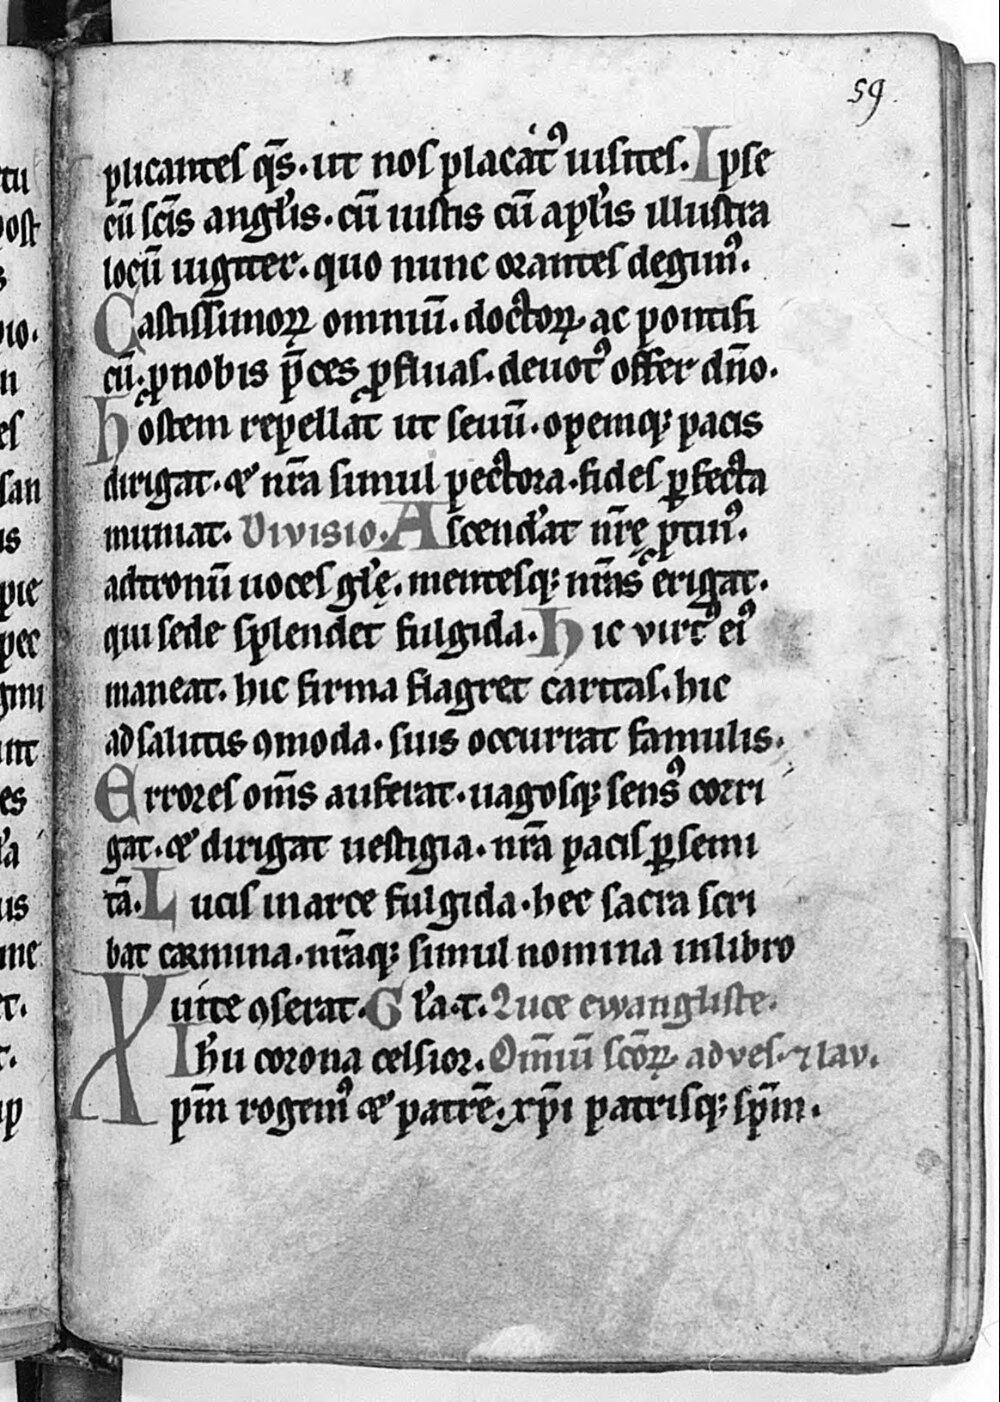 59
plicantes q̄s. ut nos placatꝰ uisites. Ipse
cū sc̄is angl̓is. cū iustis cū apl̓is illustra
locū iugiter. quo nunc orantes degimꝰ.
Castissimoꝝ omniū. doctoꝝ ac pontifi
cū. ꝓnobis p̄ces ꝓfluas. deuotꝰ offer dn̄o.
hostem repellat ut seuū. opemqꝫ pacis
dirigat. & nr̄a simul pectora. fides ꝑfecta
muniat. Divisio. Ascendat nr̄ę ꝓtinꝰ.
adtronū uoces gl̓ę. mentesqꝫ nr̄as erigat.
qui sede splendet fulgida. hic virtꝰ eiꝰ
maneat. hic firma flagret caritas. hic
adsalutis ꝯmoda. suis occurrat famulis.
Errores om̄s auferat. uagosqꝫ sensꝰ corri
gat. & dirigat uestigia. nr̄a pacis ꝑsemi
tā. Lucis inarce fulgida. hec sacra scri
bat carmina. nr̄aqꝫ simul nomina inlibro
uite ꝯserat. Gl̓a. t. Luce ewangliste.
Ihu corona celsior. Om̄iū sc̄oꝝ adves. ⁊ lav.
Xpm̄ rogemꝰ & patrē. xp̄i patrisqꝫ sp̄m.